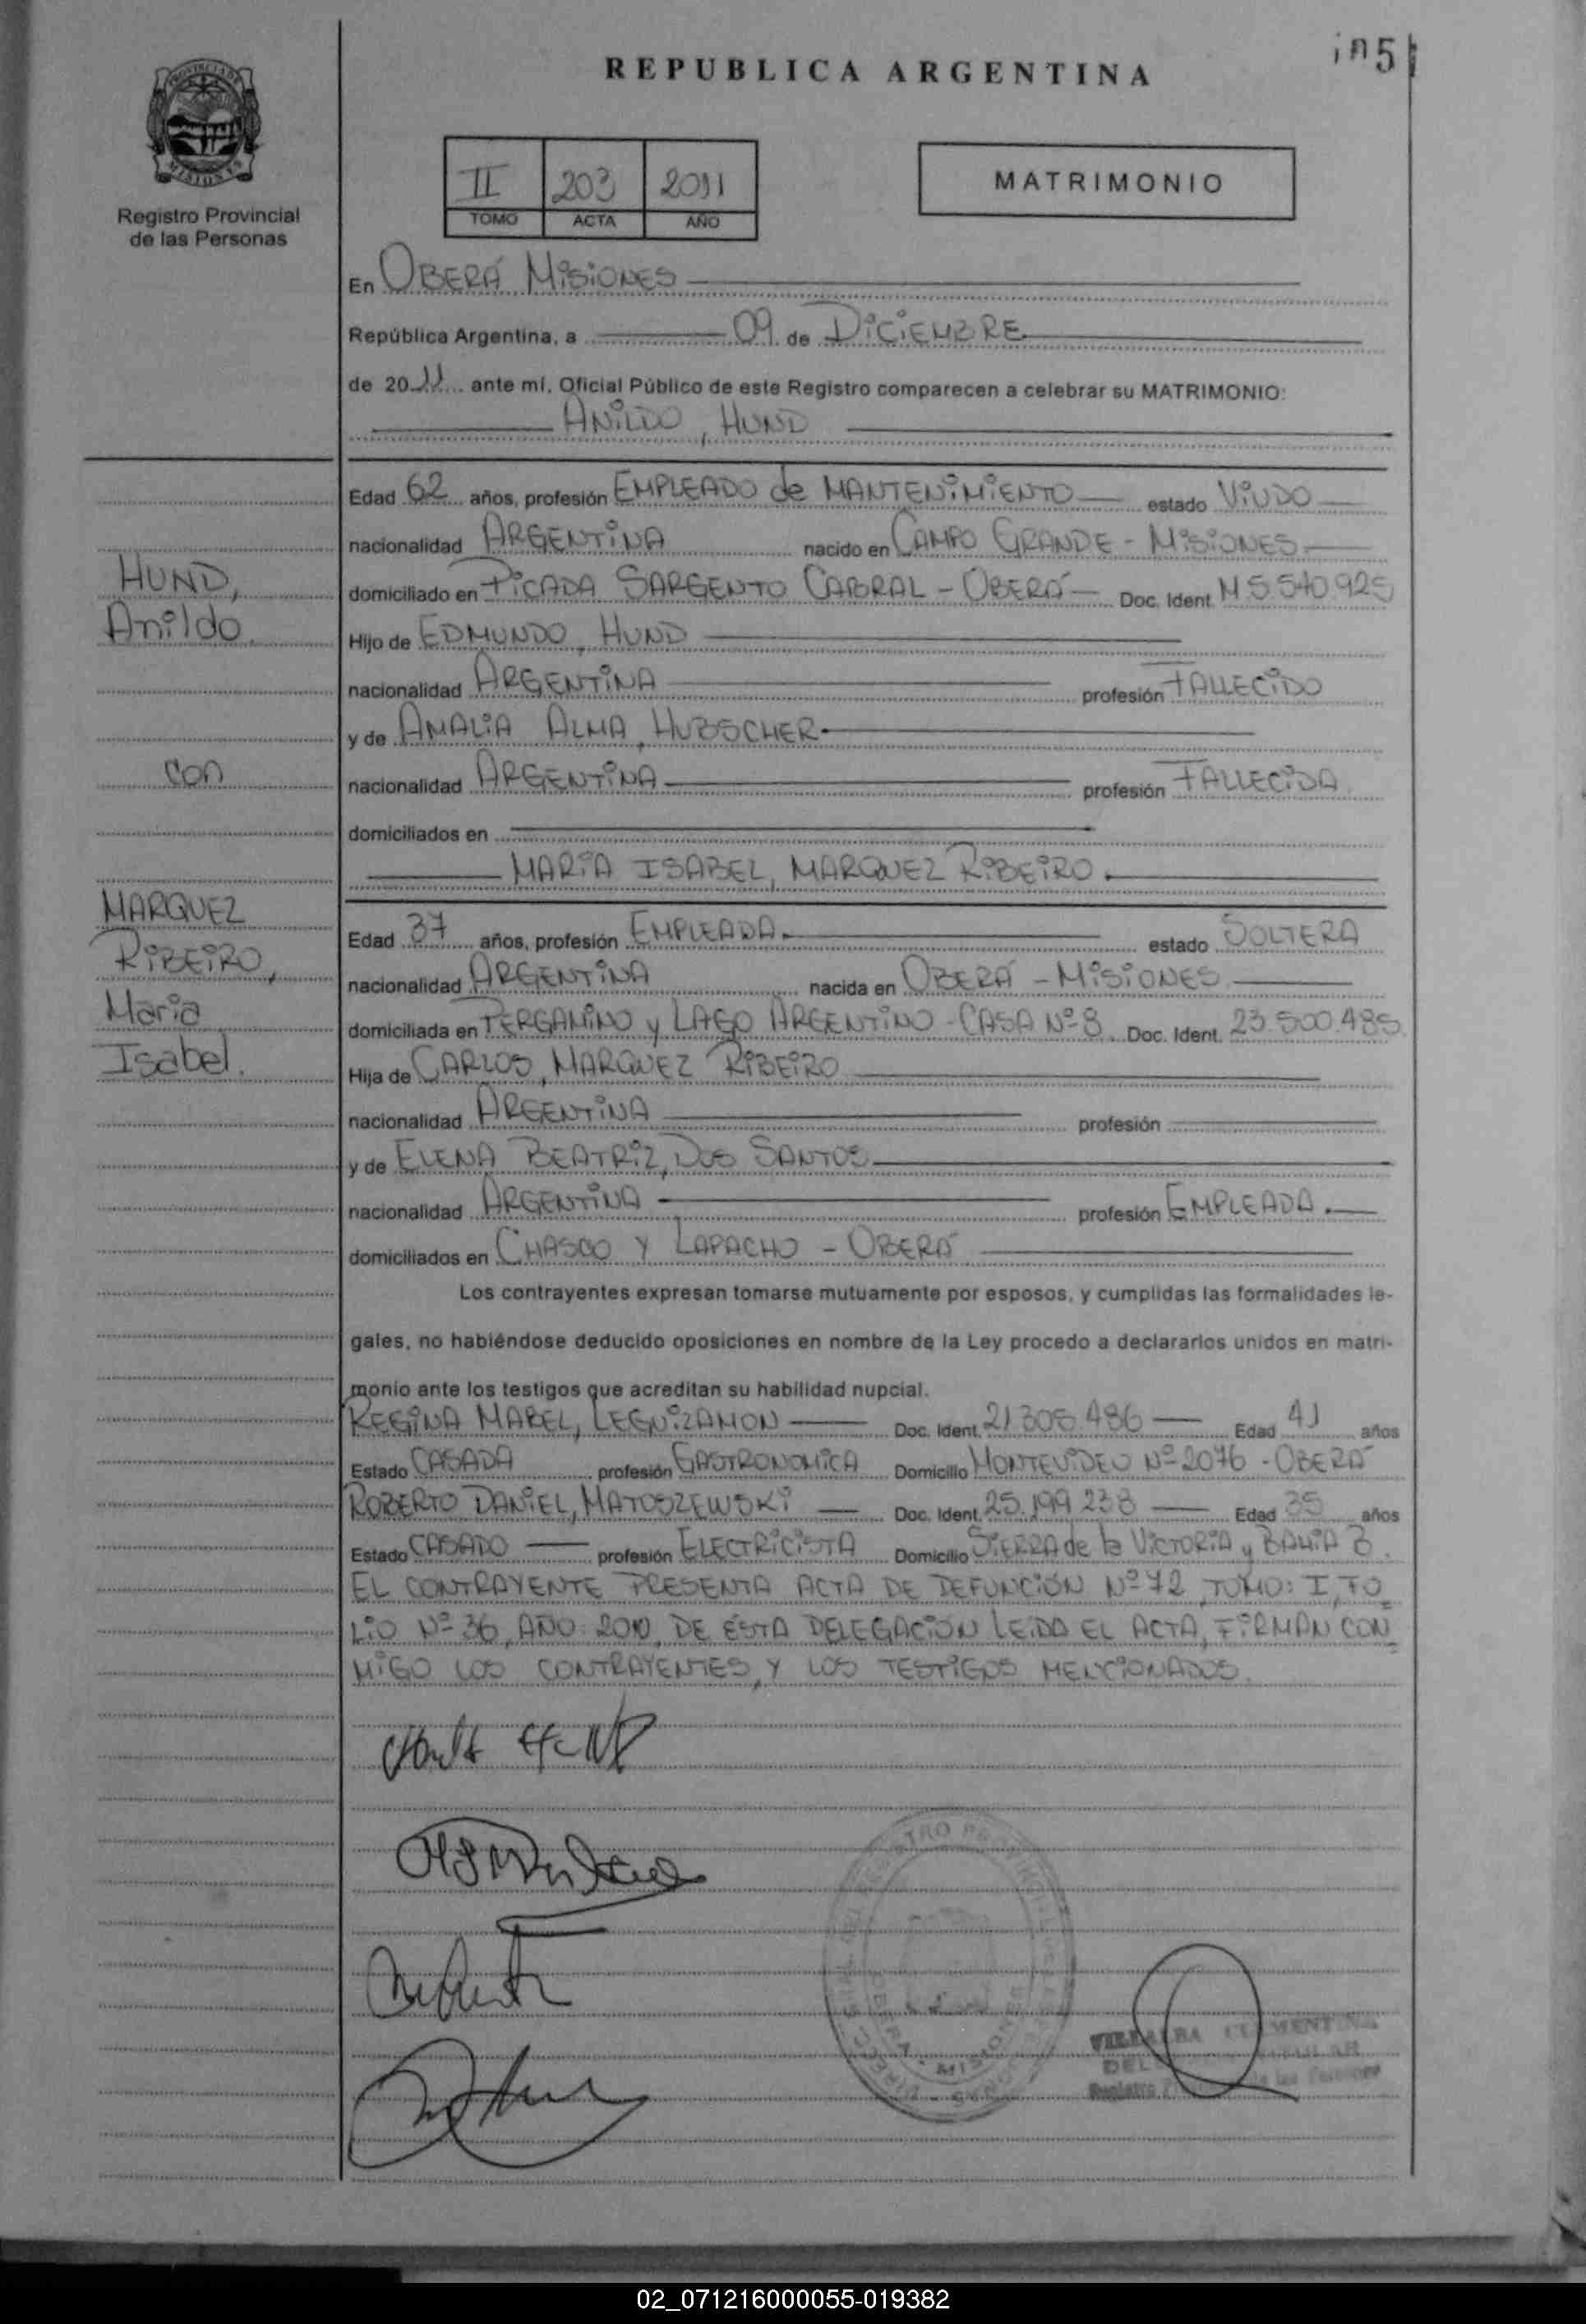 REPUBLICA ARGENTINA
PROVINCIA DE
MISIONES
Registro Provincial
de las Personas
II 203 2011
TOMO ACTA AÑO
MATRIMONIO
En OBERÁ MISIONES
República Argentina, a 09 de DICIEMBRE
de 2011 ante mí, Oficial Público de este Registro comparecen a celebrar su MATRIMONIO:
ANILDO, HUND
Edad 62 años, profesión EMPLEADO de MANTENIMIENTO estado VIUDO
nacionalidad ARGENTINA nacido en CAMPO GRANDE - MISIONES
HUND,
Anildo.
domiciliado en PICADA SARGENTO CABRAL - OBERÁ Doc. Ident. M 5.540.925
Hijo de EDMUNDO, HUND
nacionalidad ARGENTINA profesión FALLECIDO
y de AMALIA ALMA, HUBSCHER
con
nacionalidad ARGENTINA profesión FALLECIDA
domiciliados en
MARIA ISABEL, MARQUEZ RIBEIRO.
MARQUEZ
RIBEIRO,
Maria
Isabel.
Edad 37 años, profesión EMPLEADA. estado SOLTERA
nacionalidad ARGENTINA nacida en OBERÁ - MISIONES
domiciliada en PERGAMINO y LAGO ARGENTINO - CASA Nº 8 Doc. Ident. 23.500.485
Hija de CARLOS, MARQUEZ RIBEIRO
nacionalidad ARGENTINA profesión
y de ELENA BEATRIZ, DOS SANTOS
nacionalidad ARGENTINA profesión EMPLEADA.
domiciliados en CHASCO Y LAPACHO - OBERÁ
Los contrayentes expresan tomarse mutuamente por esposos, y cumplidas las formalidades le-
gales, no habiéndose deducido oposiciones en nombre de la Ley procedo a declararlos unidos en matri-
monio ante los testigos que acreditan su habilidad nupcial.
REGINA MABEL, LEGUIZAMON Doc. Ident. 21.305.486 Edad 41 años
Estado CASADA profesión GASTRONOMICA Domicilio MONTEVIDEO Nº 2076 - OBERÁ
ROBERTO DANIEL, MATOSZEWSKI Doc. Ident. 25.199.238 Edad 35 años
Estado CASADO profesión ELECTRICISTA Domicilio SIERRA de la VICTORIA y BAHIA B.
EL CONTRAYENTE PRESENTA ACTA DE DEFUNCIÓN Nº 72, TOMO: I, FO
LIO Nº 36, AÑO: 2010, DE ÉSTA DELEGACIÓN LEIDA EL ACTA, FIRMAN CON
MIGO LOS CONTRAYENTES, Y LOS TESTIGOS MENCIONADOS.
02_071216000055-019382